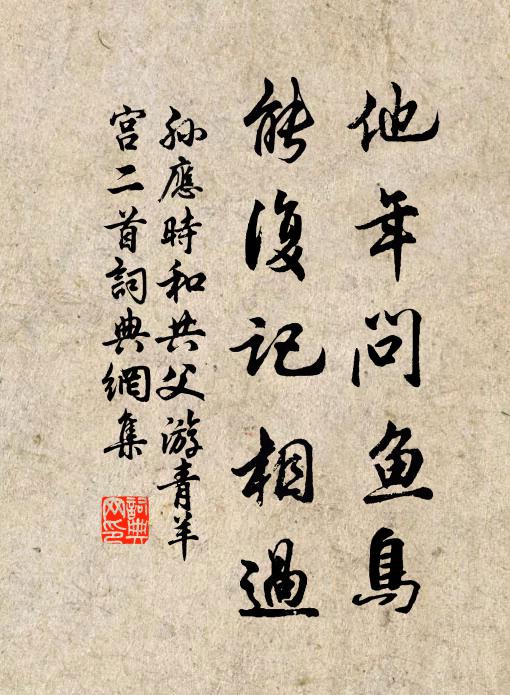 他年问鱼鳥
能復记相過
孙應時和共父游青羊
宫二首詞典網集
詞典
网印